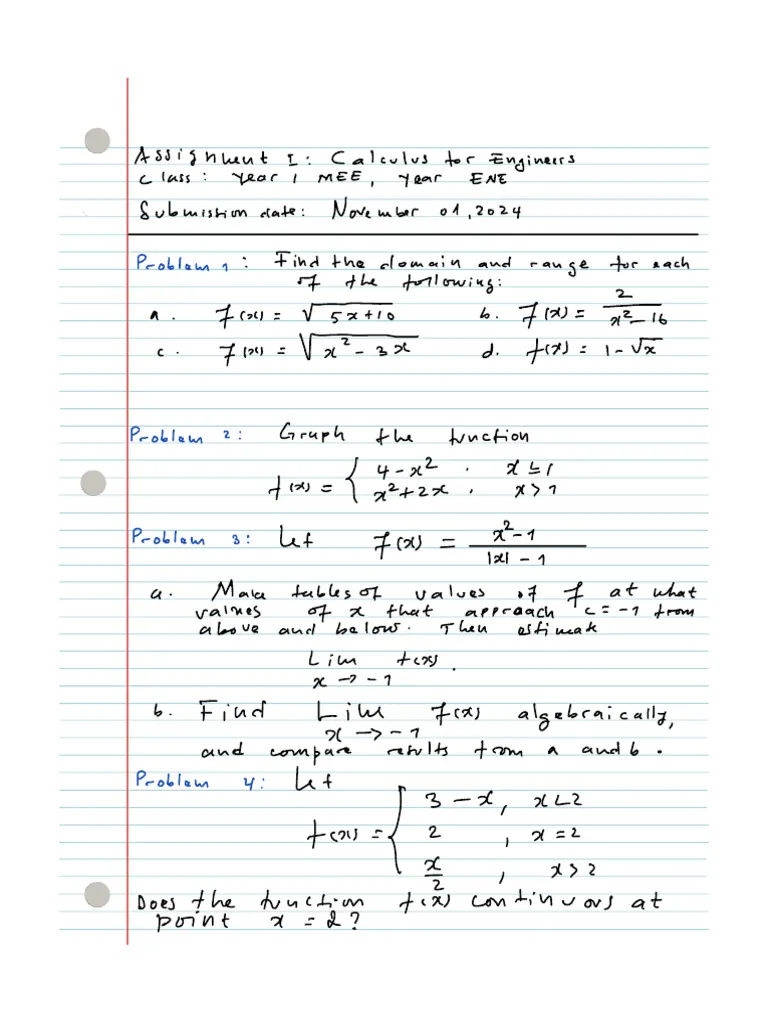 Assignment I: Calculus for Engineers
Class: Year 1 MEE, Year ENE
Submission date: November 01, 2024
Problem 1: Find the domain and range for each
of the following:
a. f(x) = √(5x+10) b. f(x) = 2/(x²-16)
c. f(x) = √(x² - 3x) d. f(x) = 1-√x
Problem 2: Graph the function
f(x) = { 4-x², x ≤ 1
x²+2x, x > 1
Problem 3: Let f(x) = (x²-1)/(|x|-1)
a. Make tables of values of f at what
values of x that approach c=-1 from
above and below. Then estimate
Lim f(x).
x → -1
b. Find Lim f(x) algebraically,
x → -1
and compare results from a and b.
Problem 4: Let
f(x) = { 3 - x, x < 2
2, x = 2
x/2, x > 2
Does the function f(x) continuous at
point x = 2?